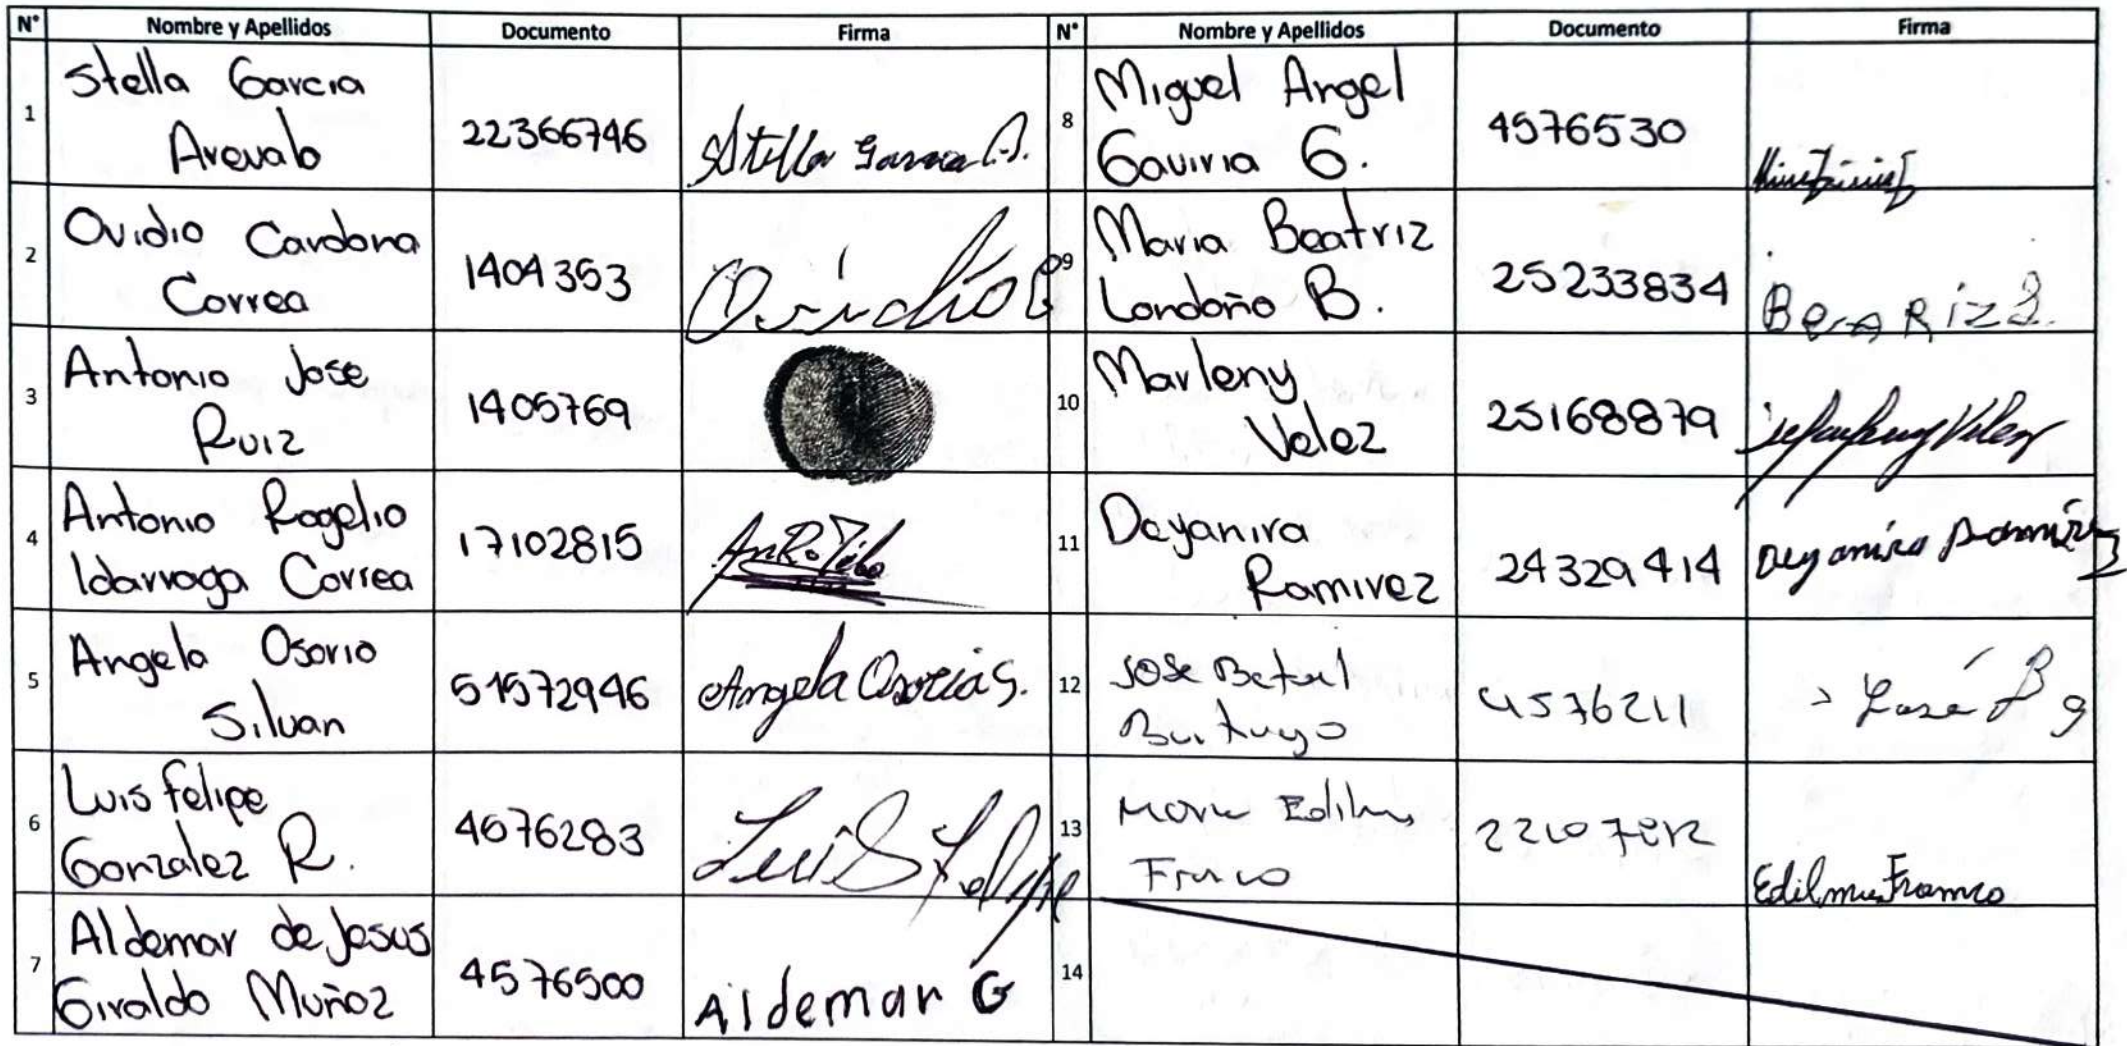 N° Nombre y Apellidos Documento Firma N° Nombre y Apellidos Documento Firma
1 Stella Garcia
Arevalo 22366746 Stella Garcia A.
2 Ovidio Cardona
Correa 1404353 Ovidio C
3 Antonio Jose
Ruiz 1405769
4 Antonio Rogelio
Idarraga Correa 17102815
5 Angela Osorio
Silvan 51572946 Angela Osorio S.
6 Luis Felipe
Gonzalez R. 4576283 Luis Felipe
7 Aldemar de Jesus
Giraldo Muñoz 4576500 Aldemar G
8 Miguel Angel
Gaviria G. 4576530
9 Maria Beatriz
Londoño B. 25233834
10 Marleny
Velez 25168879 Velez
11 Dayanira
Ramirez 24329414 Deyanira Ramirez
12 Jose
4576211 José B g
13 Edilma
Franco Edilma Franco
14